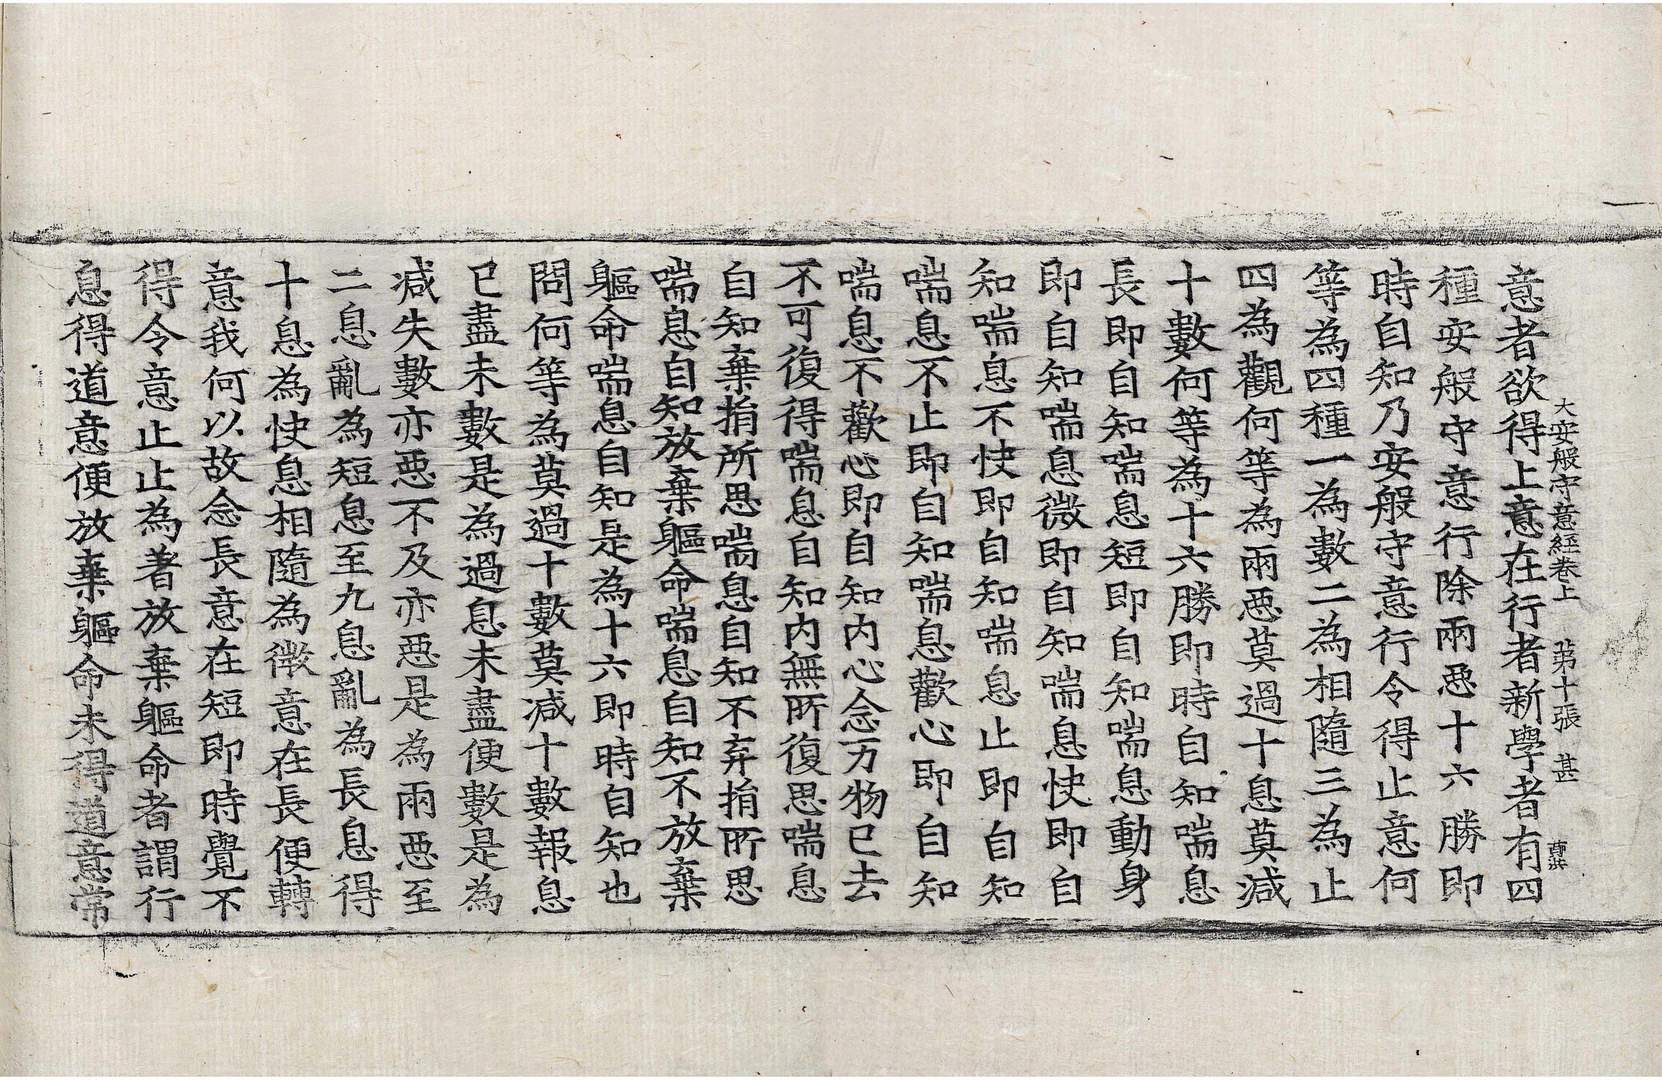 大安般守意經卷上 第十張 甚
意者欲得上意在行者新學者有四
種安般守意行除兩悪十六勝即
時自知乃安般守意行令得止意何
等為四種一為數二為相隨三為止
四為觀何等為兩悪莫過十息莫減
十數何等為十六勝即時自知喘息
長即自知喘息短即自知喘息動身
即自知喘息微即自知喘息快即自
知喘息不快即自知喘息止即自知
喘息不止即自知喘息歡心即自知
喘息不歡心即自知內心念万物已去
不可復得喘息自知內無所復思喘息
自知棄捐所思喘息自知不弃捐所思
喘息自知放棄軀命喘息自知不放棄
軀命喘息自知是為十六即時自知也
問何等為莫過十數莫減十數報息
已盡未數是為過息未盡便數是為
減失數亦悪不及亦悪是為兩悪至
二息亂為短息至九息亂為長息得
十息為快息相隨為微意在長便轉
意我何以故念長意在短即時覺不
得令意止止為著放棄軀命者謂行
息得道意便放棄軀命未得道意常